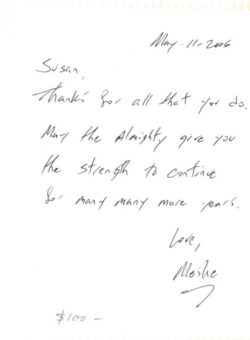 May-11-2006
Susan,
Thanks for all that you do.
May the Almighty give you
the strength to continue
for many many more years.
Love,
Moshe
$100-